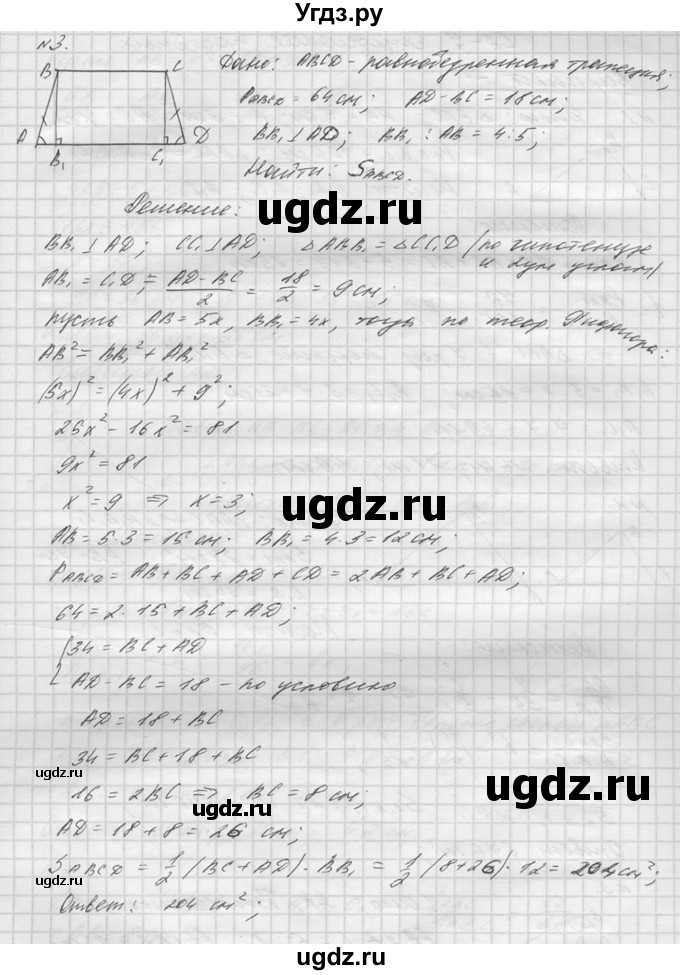 Угдз.ру
№3.
B C
A D
B₁ C₁
Дано: ABCD - равнобедренная трапеция;
P_ABCD = 64 см; AD - BC = 18 см;
BB₁ ⊥ AD; BB₁ : AB = 4:5;
Найти: S_ABCD.
ugdz.ru
Решение:
BB₁ ⊥ AD; CC₁ ⊥ AD; △ABB₁ = △CC₁D (по гипотенузе и двум углам)
AB₁ = C₁D = (AD - BC)/2 = 18/2 = 9 см;
пусть AB = 5x, BB₁ = 4x, тогда по теор. Пифагора:
AB² = BB₁² + AB₁²
(5x)² = (4x)² + 9²;
25x² - 16x² = 81
9x² = 81
x² = 9 ⇒ x = 3;
ugdz.ru
AB = 5·3 = 15 см; BB₁ = 4·3 = 12 см;
P_ABCD = AB + BC + AD + CD = 2AB + BC + AD;
64 = 2·15 + BC + AD;
{34 = BC + AD
AD - BC = 18 - по условию
AD = 18 + BC
34 = BC + 18 + BC
ugdz.ru
ugdz.ru
16 = 2BC ⇒ BC = 8 см;
ugdz.ru
AD = 18 + 8 = 26 см;
S_ABCD = 1/2 (BC + AD) · BB₁ = 1/2 (8+26) · 12 = 204 см²;
Ответ: 204 см²;
ugdz.ru
ugdz.ru